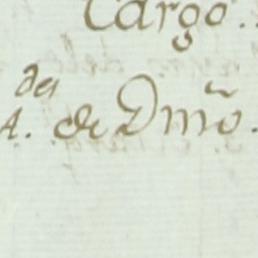 Cargo.
des
A. de Dmõ.